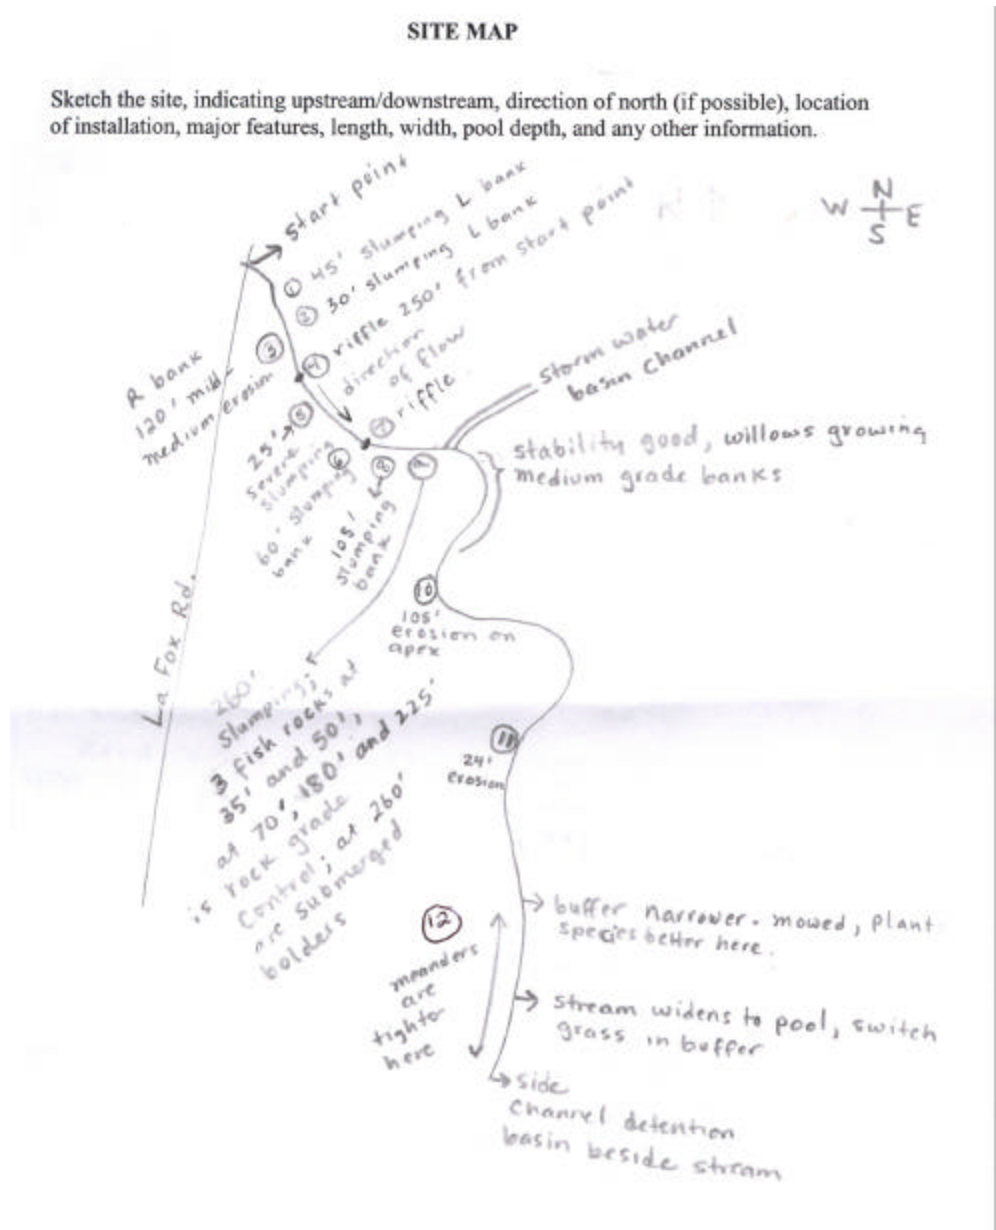 SITE MAP
Sketch the site, indicating upstream/downstream, direction of north (if possible), location
of installation, major features, length, width, pool depth, and any other information.
start point
N
W E
S
① 45' slumping L bank
② 30' slumping L bank
④ riffle 250' from start point
③
R bank
120' mild-
medium erosion
direction
of flow
⑦ riffle
storm water
basin channel
⑤
25'
severe
slumping
⑥
60' slumping
bank
⑧
105'
slumping
bank
⑨
stability good, willows growing
medium grade banks
⑩
105'
erosion on
apex
La Fox Rd.
260'
slumping;
3 fish rocks at
35' and 50',
at 70', 180' and 225'
is rock grade
control; at 260'
are submerged
bolders
⑪
24'
erosion
⑫
meanders
are
tighter
here
buffer narrower. mowed, plant
species better here.
stream widens to pool, switch
grass in buffer
side
channel detention
basin beside stream